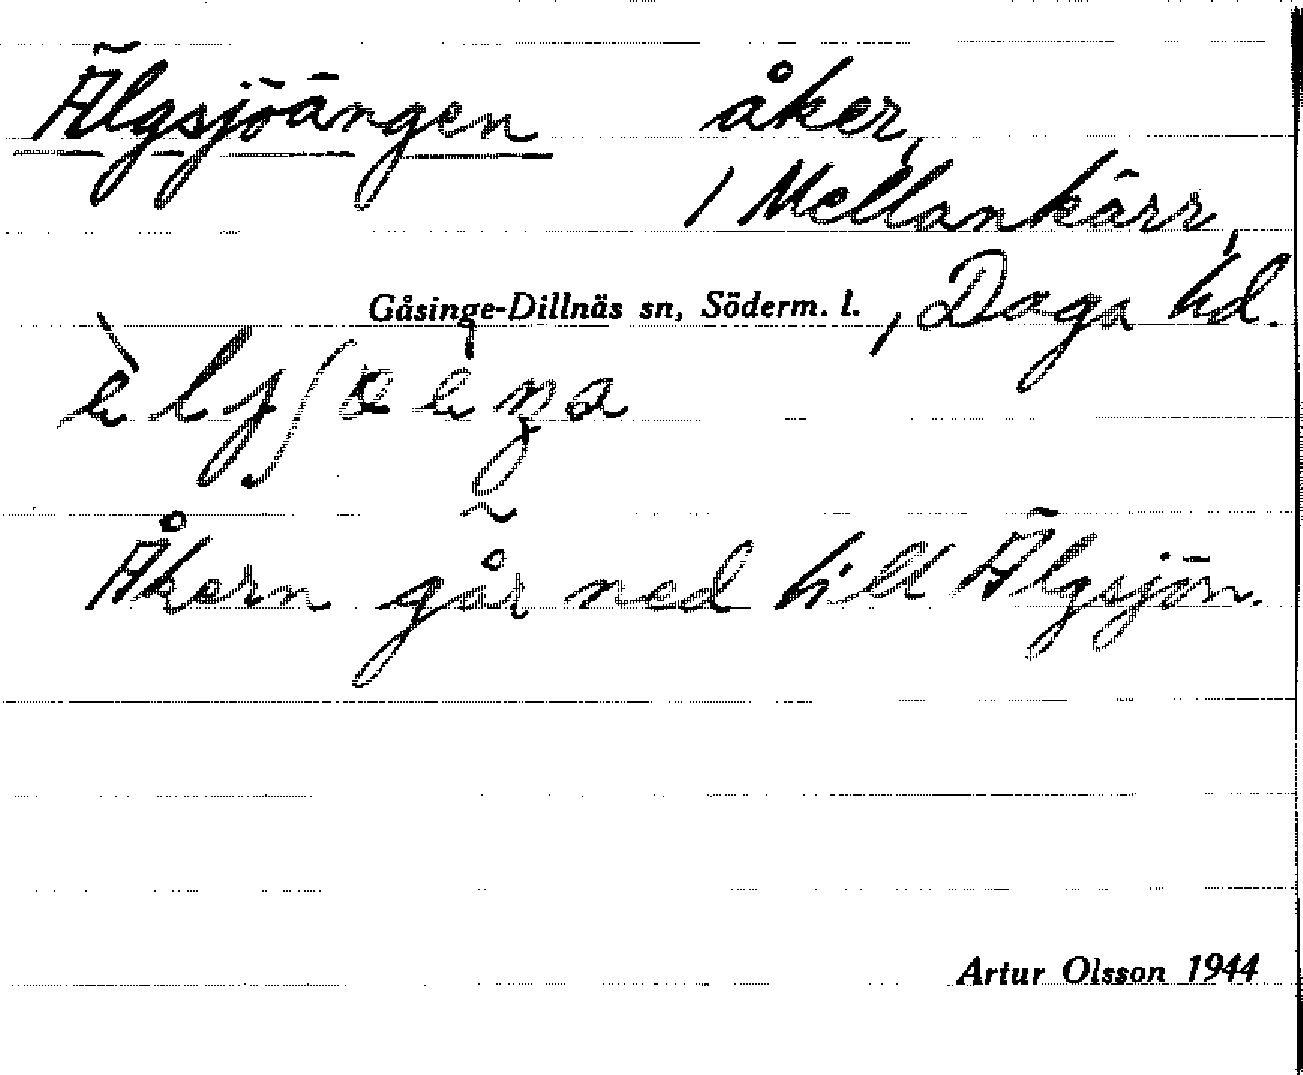 Älgsjöängen åker,
1 Mellankärr,
Gåsinge-Dillnäs sn, Söderm. l., Daga hd.
Åkern går ned till Älgsjön.
Artur Olsson 1944